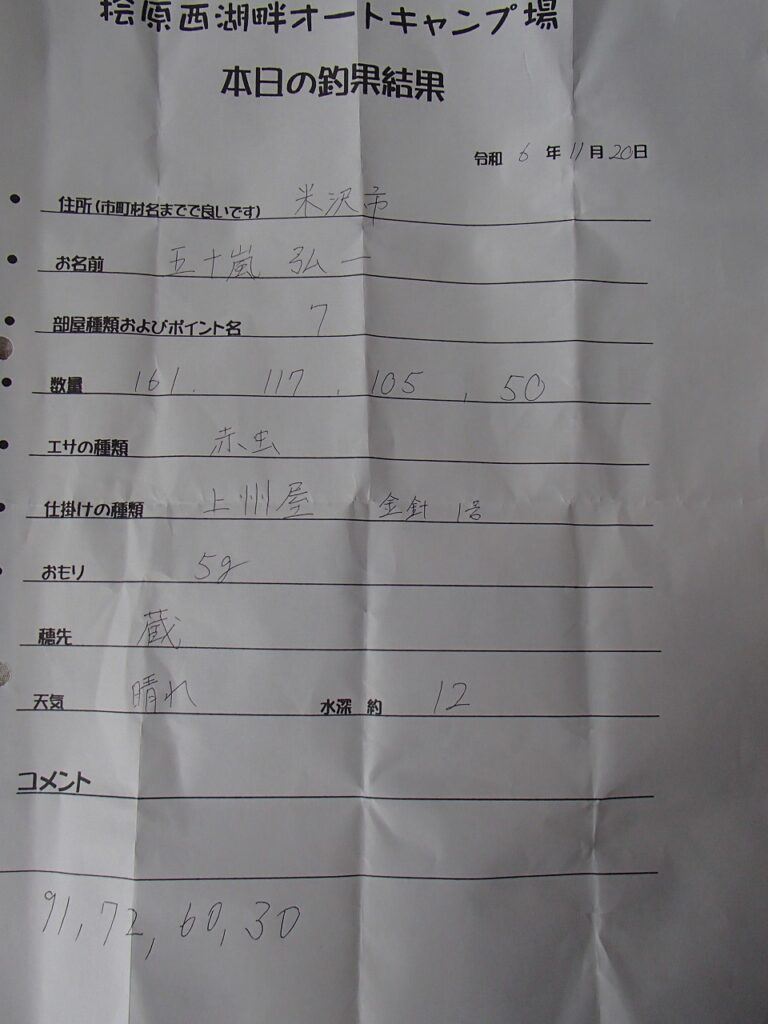 桧原西湖畔オートキャンプ場
本日の釣果結果
令和 6 年 11 月 20 日
住所(市町村名までで良いです) 米沢市
お名前 五十嵐 弘一
部屋種類およびポイント名 7
数量 161. 117 , 105 , 50
エサの種類 赤虫
仕掛けの種類 上州屋 金針 1号
おもり 5g
穂先 蔵
天気 晴れ 水深 約 12
コメント
91, 72, 60, 30